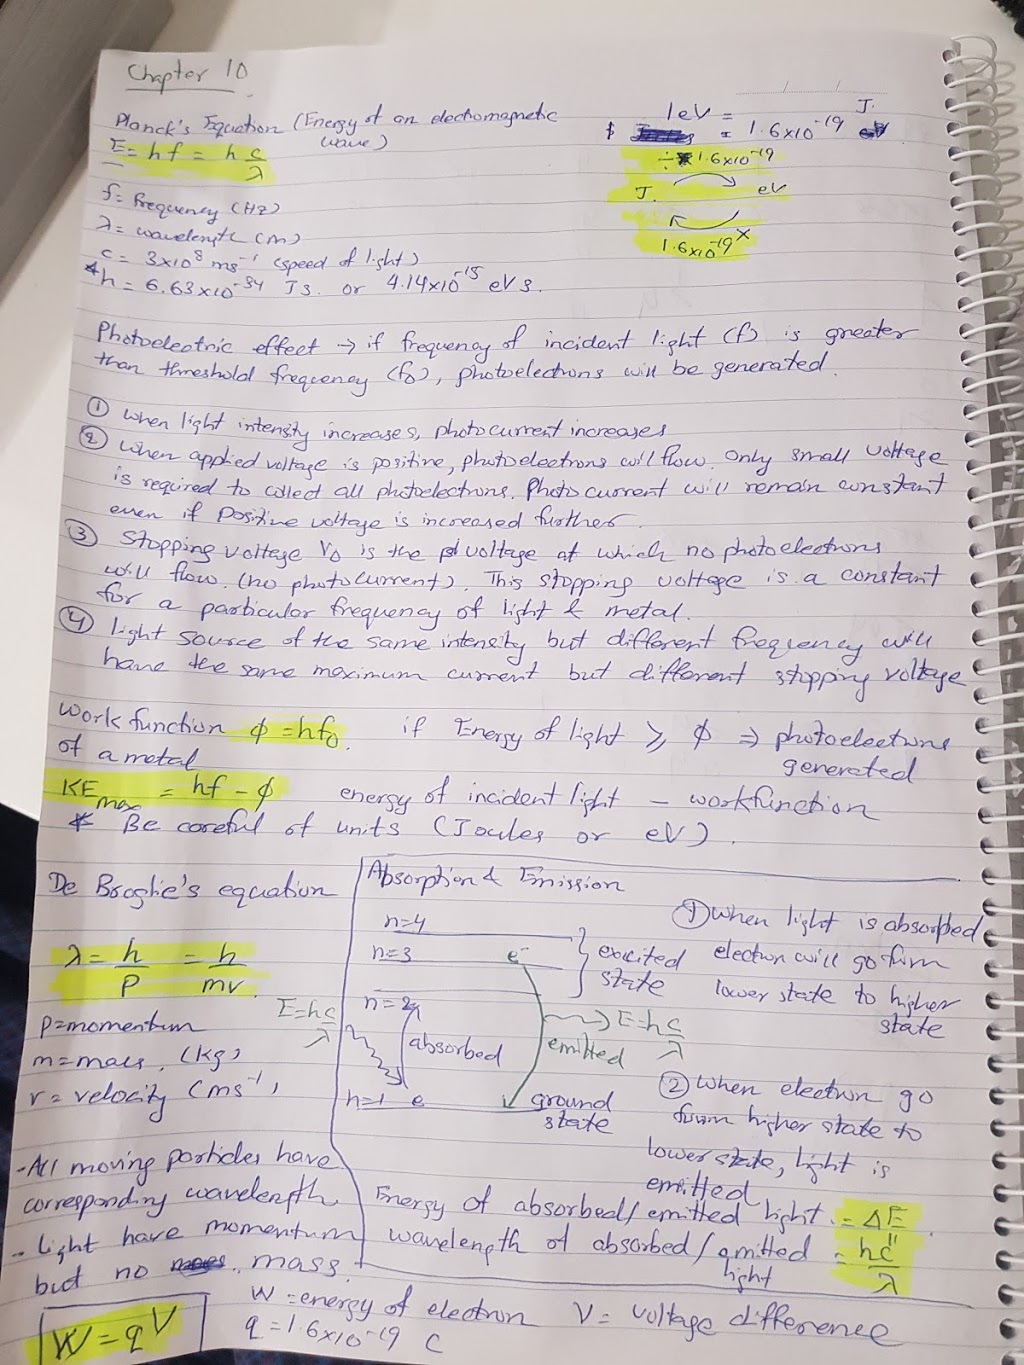 Chapter 10
Planck's Equation (Energy of an electromagnetic
wave)
E = hf = h c/λ
1eV = J.
$ = 1.6x10-19 eV
÷ 1.6x10-19
J. eV
1.6x10-19 x
f = frequency (Hz)
λ = wavelength (m)
c = 3x10⁸ ms⁻¹ (speed of light)
*h = 6.63x10⁻³⁴ Js. or 4.14x10⁻¹⁵ eVs.
Photoelectric effect → if frequency of incident light (f) is greater
than threshold frequency (f₀), photoelectrons will be generated.
① When light intensity increases, photocurrent increases
② When applied voltage is positive, photoelectrons will flow. Only small voltage
is required to collect all photoelectrons. Photocurrent will remain constant
even if positive voltage is increased further.
③ Stopping voltage V₀ is the voltage at which no photoelectrons
will flow. (no photocurrent). This stopping voltage is a constant
for a particular frequency of light & metal.
④ light source of the same intensity but different frequency will
have the same maximum current but different stopping voltage
Work function ϕ = hf₀. if Energy of light ≥ ϕ ⇒ photoelectrons
of a metal generated
KEmax = hf - ϕ energy of incident light - workfunction
* Be careful of units (Joules or eV).
De Broglie's equation
λ = h/p = h/mv.
p=momentum
m=mass, (kg)
v = velocity (ms⁻¹)
- All moving particles have
corresponding wavelength
- light have momentum
but no mass.
Absorption & Emission
n=4
n=3 e⁻
excited
state
n=2
E=hc/λ
absorbed
E=hc/λ
emitted
n=1 e
ground
state
① When light is absorbed
electron will go from
lower state to higher
state
② When electron go
from higher state to
lower state, light is
emitted
Energy of absorbed/emitted light = ΔE
wavelength of absorbed/emitted = hc/λ
light
W = qV
W = energy of electron V = voltage difference
q = 1.6x10⁻¹⁹ C